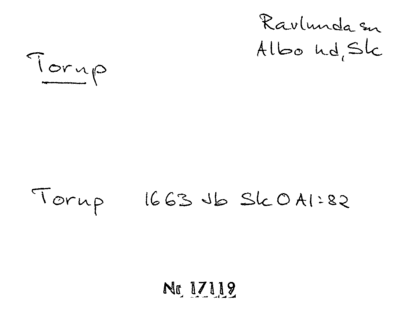 Ravlunda sn
Albo hd, Sk
Torup
Torup 1663 Jb Sk O AI:82
Nr 17119